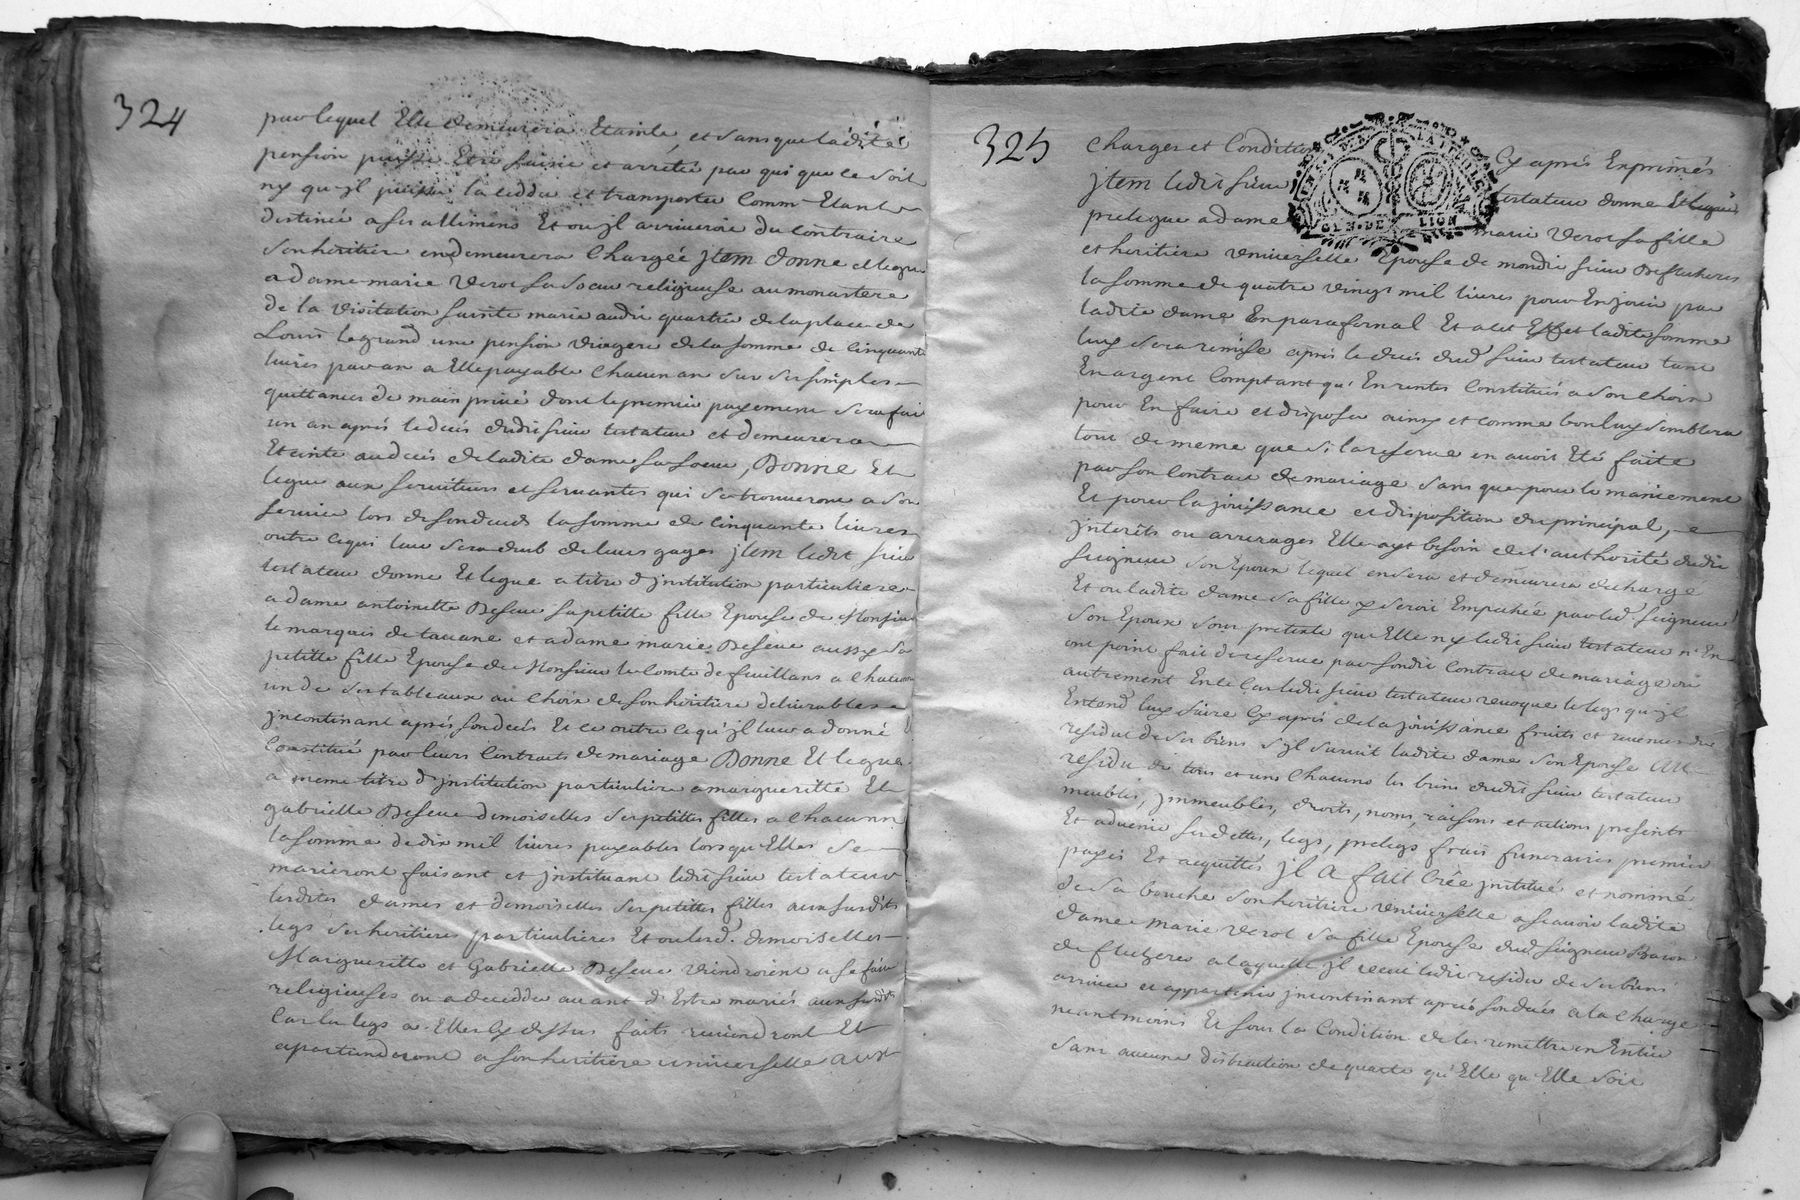 324
par lequel Elle demeurera Etainte, et sans que ladite
pension puisse Etre saisie et arretée par qui que ce soit
ny qu'jl puisse la cedder et transporter Comm Etant
destinée a ses allimens Et ou jl arriveroit du Contraire
son heritiere en demeurera Chargée jtem donne et legue
a dame marie Verot sa soeur religieuse au monastere
de la Visitation sainte marie audit quartier de la place de
Louis le grand une pension Viagere de la somme de Cinquante
livres par an a Elle payable Chacun an sur ses simples
quittances de main privé dont le premier payement sera fait
un an aprés le decés dudit sieur testateur et demeurera
Eteinte au decés de ladite dame sa soeur, Donne Et
legue aux serviteurs et servantes qui se trouveront a son
service lors de son deceds la somme de Cinquante livres
outre ce qui leur sera dub de leurs gages jtem ledit sieur
testateur donne Et legue a titre d'jnstitution particuliere
a dame antoinette Deseve sa petitte fille Epouse de Monsieur
le marquis de tavane et a dame marie Deseve aussy sa
petitte fille Epouse de Monsieur le Comte de feuillans a Chacune
un de ses tableaux au Choix de son heritiere delivrables
jncontinant aprés son decés Et ce outre ce qu'jl leur a donné
Constitué par leurs Contraits de mariage Donne Et legue
a meme titre d'jnstitution particuliere a margueritte Et
gabrielle Deseve demoiselles ses petittes filles a Chacunne
la somme de dix mil livres payables lors qu'Elles se
marieront faisant et jnstituant ledit sieur testateur
lesdites dames et demoiselles ses petittes filles aux susdits
legs ses heritieres particulieres Et ou lesd. demoiselles
Margueritte et Gabrielle Deseve Viendroient a se faire
religieuses ou a decedder avant d'Estre mariés aux susdits
Cas la legs a Elles Cy dessus faits reviendront Et
apartiendront a son heritiere universelle aux
325
Charges et Conditions Cy aprés Exprimés
jtem ledit sieur testateur donne Et legue
prelegue a dame marie Verot sa fille
et heritiere Universelle Epouse de mondit sieur Defluheres
la somme de quatre Vingt mil livres pour En jouir par
ladite dame En parafernal Et a cet Effet ladite somme
luy sera remise aprés le decés dud. sieur testateur tant
En argent Comptant qu'En rentes Constitués a son Choix
pour En faire et disposer ainsy et comme bon luy semblera
tout de meme que si la reserve en avoit Eté faite
par son Contract de mariage sans que pour le maniement
Et pour la jouissance et disposition du principal,
jnterêts ou arrerages Elle ayt besoin de l'authorité dudit
seigneur son Epoux lequel en sera et demeurera decharge
Et ou ladite dame sa fille y seroit Empechée par led. seigneur
son Epoux sous pretexte qu'Elle ny ledit sieur testateur n'En
ont point fait de reserve par sondit Contract de mariage ou
autrement En ce Cas ledit sieur testateur revoque le legs qu'jl
Entend luy faire Cy aprés de la jouissance fruits et revenus du
residu de ses biens s'jl survit ladite dame son Epouse Au
residu de tous et uns Chacuns les biens dudit sieur testateur
meubles, jmmeubles, droits, noms, raisons et actions presents
Et advenir ses dettes, legs, prelegs frais funeraires premier
payés Et acquittés jl A fait Crée jnstitué et nommé
de sa bouche son heritiere Universelle a scavoir ladite
dame marie Verot sa fille Epouse dud seigneur Baron
de a laquelle jl veut ledit residu de ses biens
arriver et appartenir jncontinant aprés son decés a la Charge
neantmoins Et sous la Condition de les remettre en Entier
sans aucune distraction de quarte qu'Elle qu'Elle soit